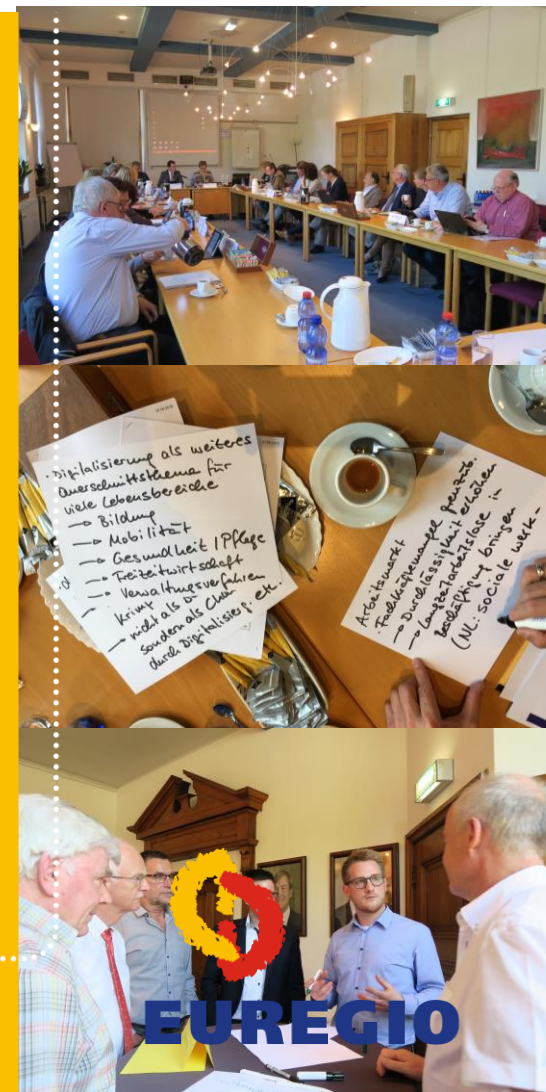 · Digitalisierung als weiteres
Querschnittsthema für
viele Lebensbereiche
→ Bildung
→ Mobilität
→ Gesundheit / Pflege
→ Freizeitwirtschaft
→ Verwaltungsverfahren
→ nicht als
sondern als
durch Digitalisierg. etc.
Arbeitsmarkt
· Fachkräftemangel grenzüb.
→ Durchlässigkeit erhöhen
→ Langzeitarbeitslose in
Beschäftigung bringen
(NL: sociale werk-
EUREGIO